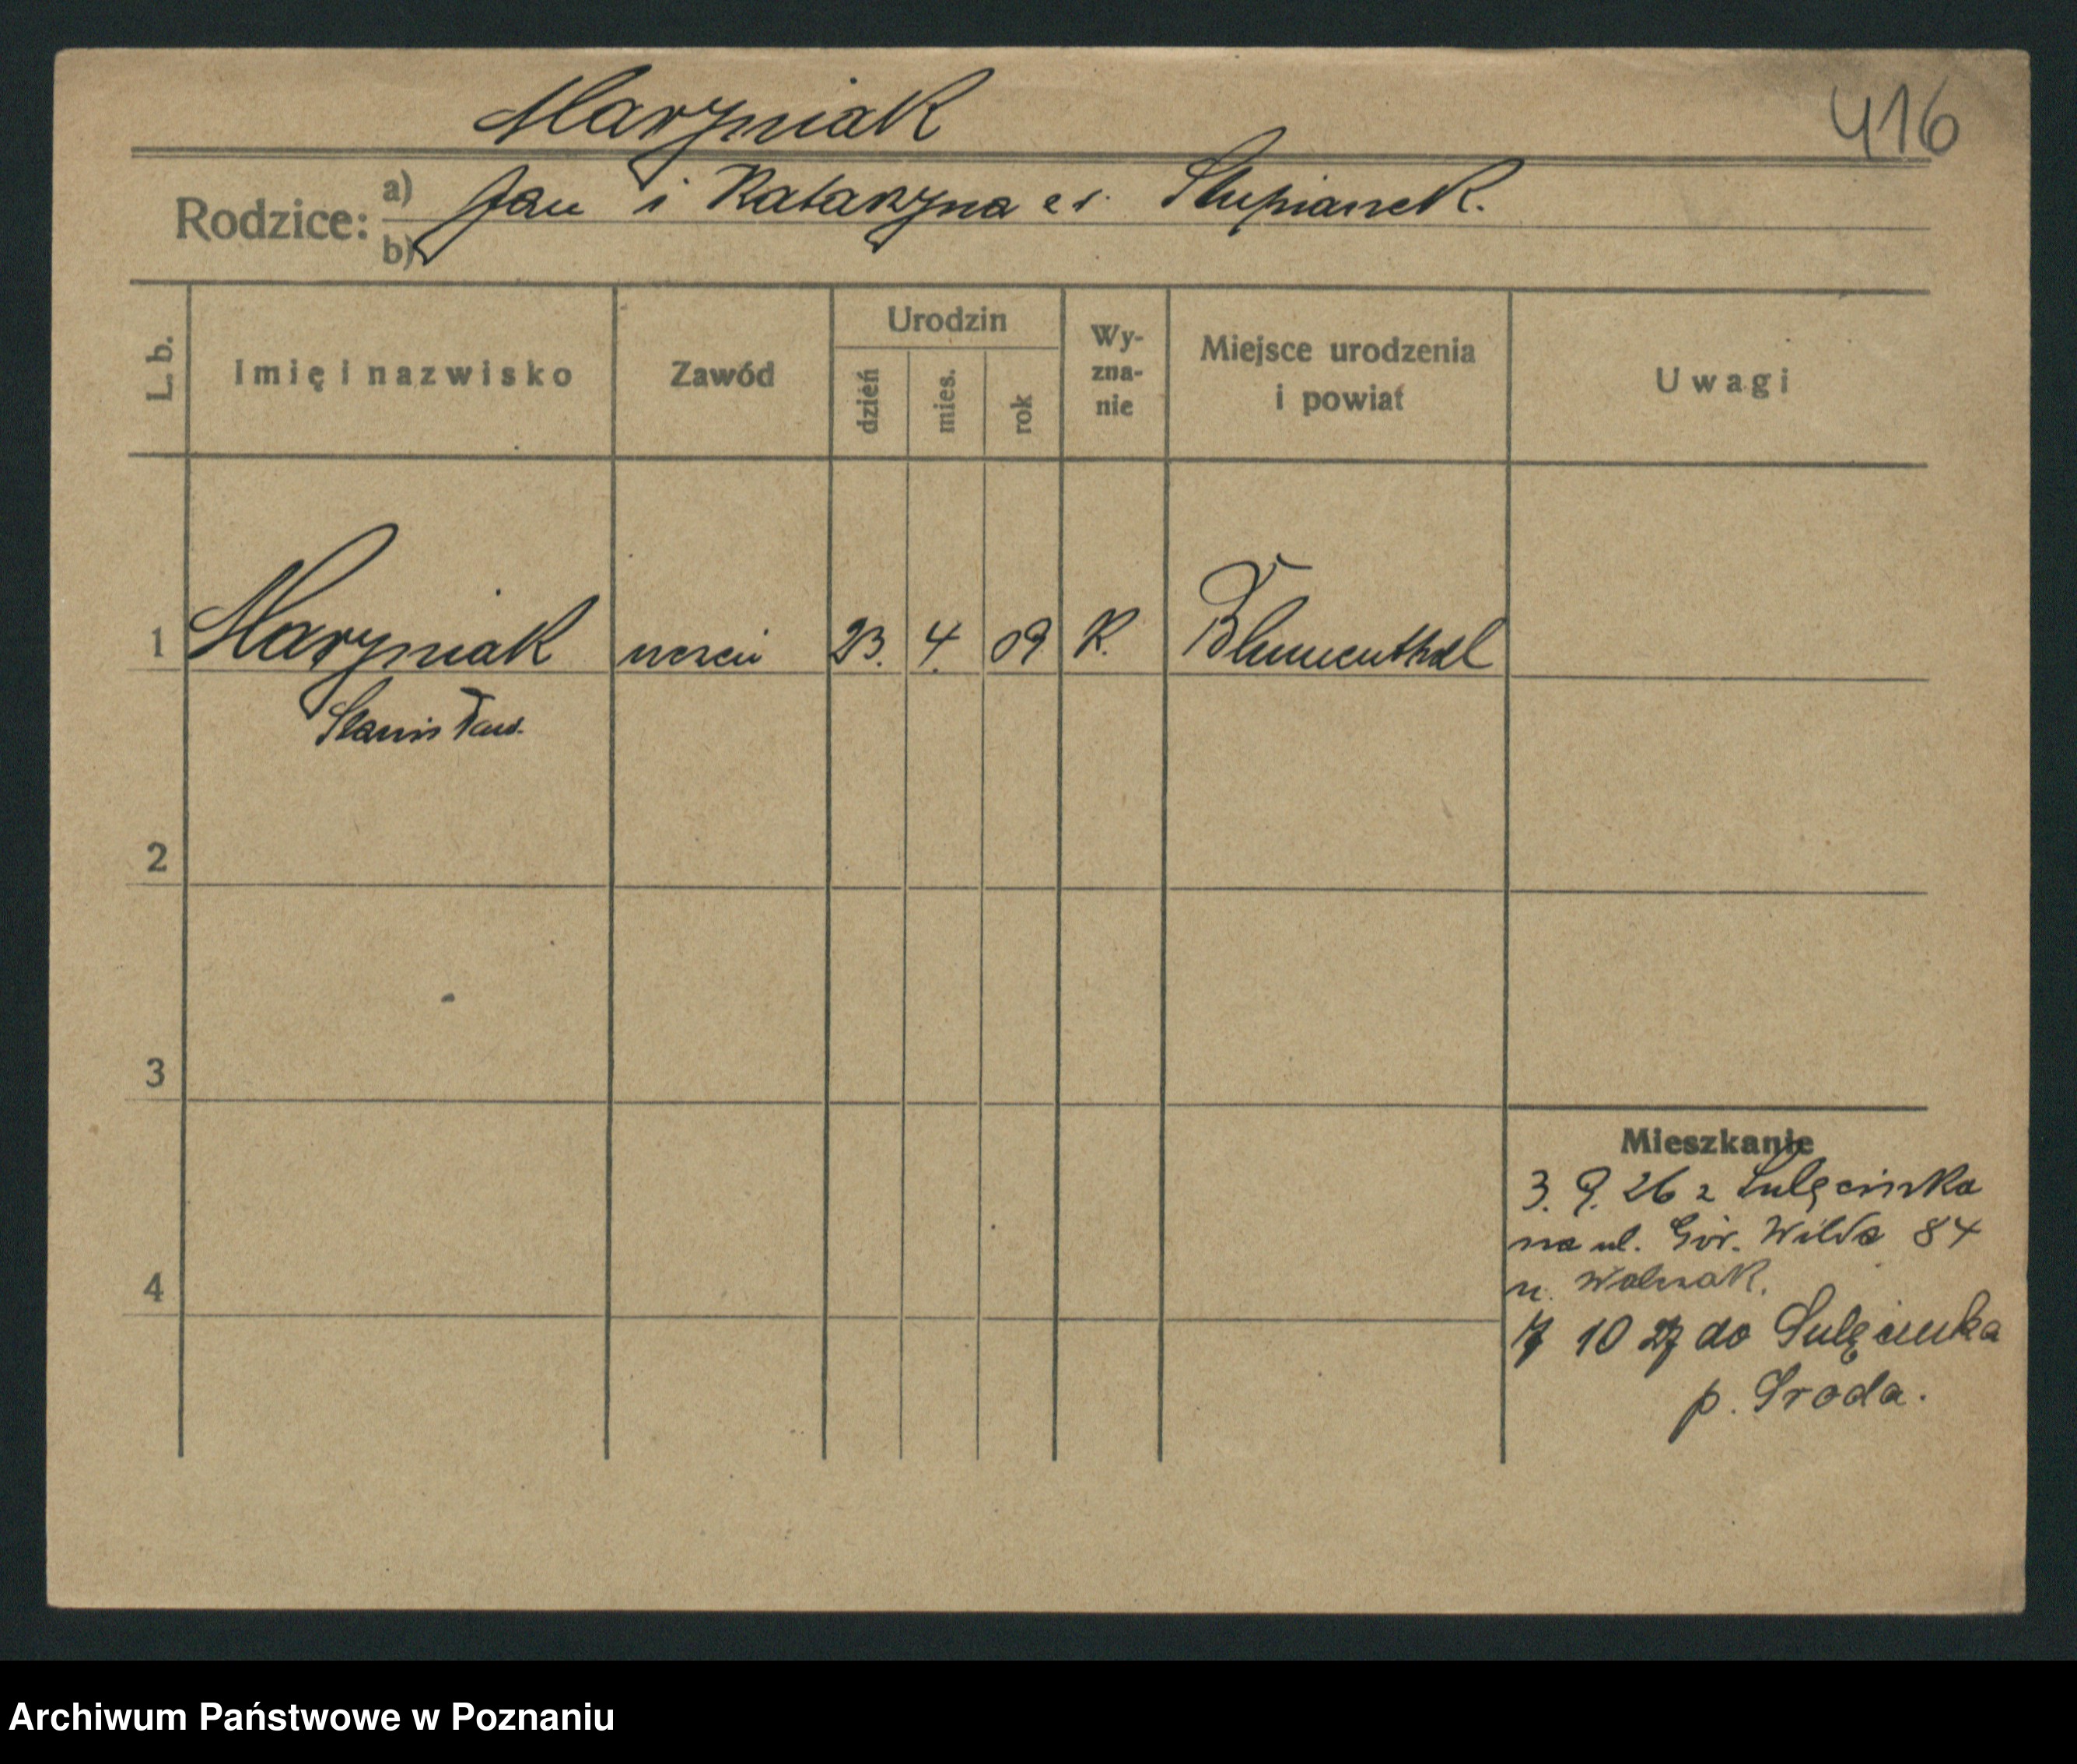 Maryniak
416
Rodzice: a) Jan i Katarzyna
b)
L. b.
Imię i nazwisko
Zawód
Urodzin
dzień
mies.
rok
Wy-
zna-
nie
Miejsce urodzenia
i powiat
Uwagi
1 Maryniak uczeń 23. 4. 09 K. Blumenthal
Stanisław.
2
3
4
Mieszkanie
3. 9. 26 z Sulęcinka
na ul. Gór. Wilda 84
u. Walczak.
10 27 do Sulęcinka
p. Sroda.
Archiwum Państwowe w Poznaniu